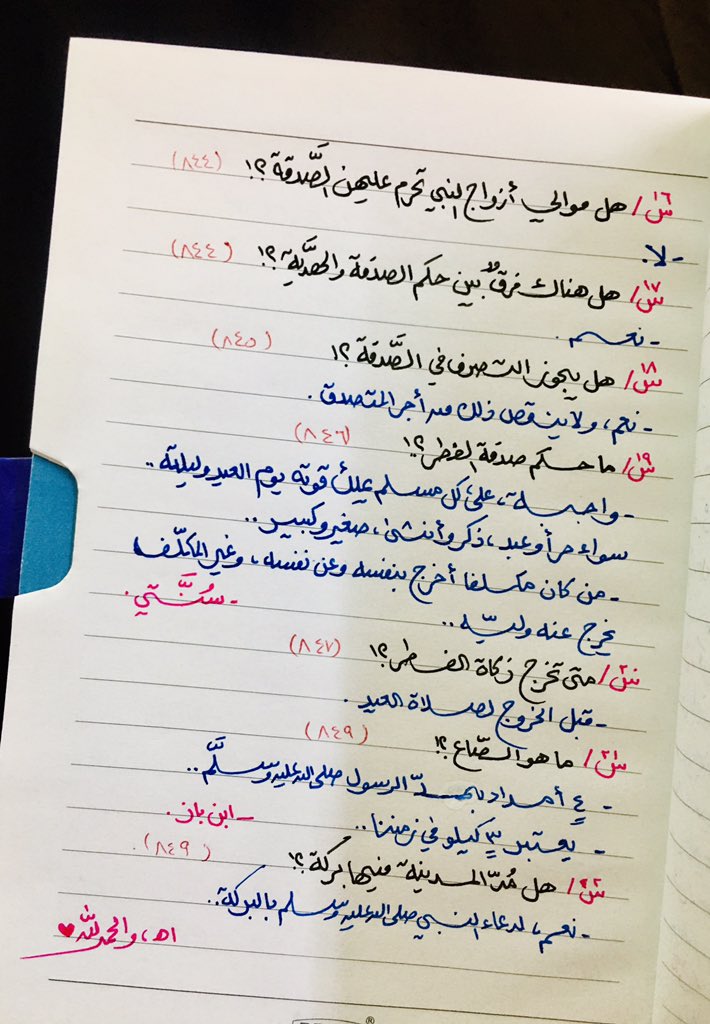 س١٦/ هل موالي أزواج النبي تحرم عليهن الصَّدقة؟! (٨٤٤)
- لا.
س١٧/ هل هناك فرقٌ بين حكم الصدقة والهديَّة؟! (٨٤٤)
- نعم.
س١٨/ هل يجوز التصرف في الصَّدقة؟! (٨٤٥)
- نعم، ولا ينقص ذلك من أجر المتصدق.
س١٩/ ما حكم صدقة الفطر؟! (٨٤٦)
- واجبة، على كل مسلم يملك قوته يوم العيد وليلته..
سواء حر أو عبد، ذكر وأنثى، صغير وكبير..
- من كان مكلفا أخرج بنفسه وعن نفسه، وغير المكلَّف
يخرج عنه وليّه..
- سُنَّتي.
س٢٠/ متى تخرج زكاة الفطر؟! (٨٤٧)
- قبل الخروج لصلاة العيد.
س٢١/ ما هو الصّاع؟! (٨٤٩)
- ٤ أمداد بمدّ الرسول صلى الله عليه وسلَّم..
- يعتبر ٣ كيلو في زمننا..
- ابن باز.
س٢٢/ هل مُدّ المدينة فيها بركة؟! (٨٤٩).
- نعم، لدعاء النبي صلى الله عليه وسلم بالبركة..
اهـ، والحمد للَّه ♥